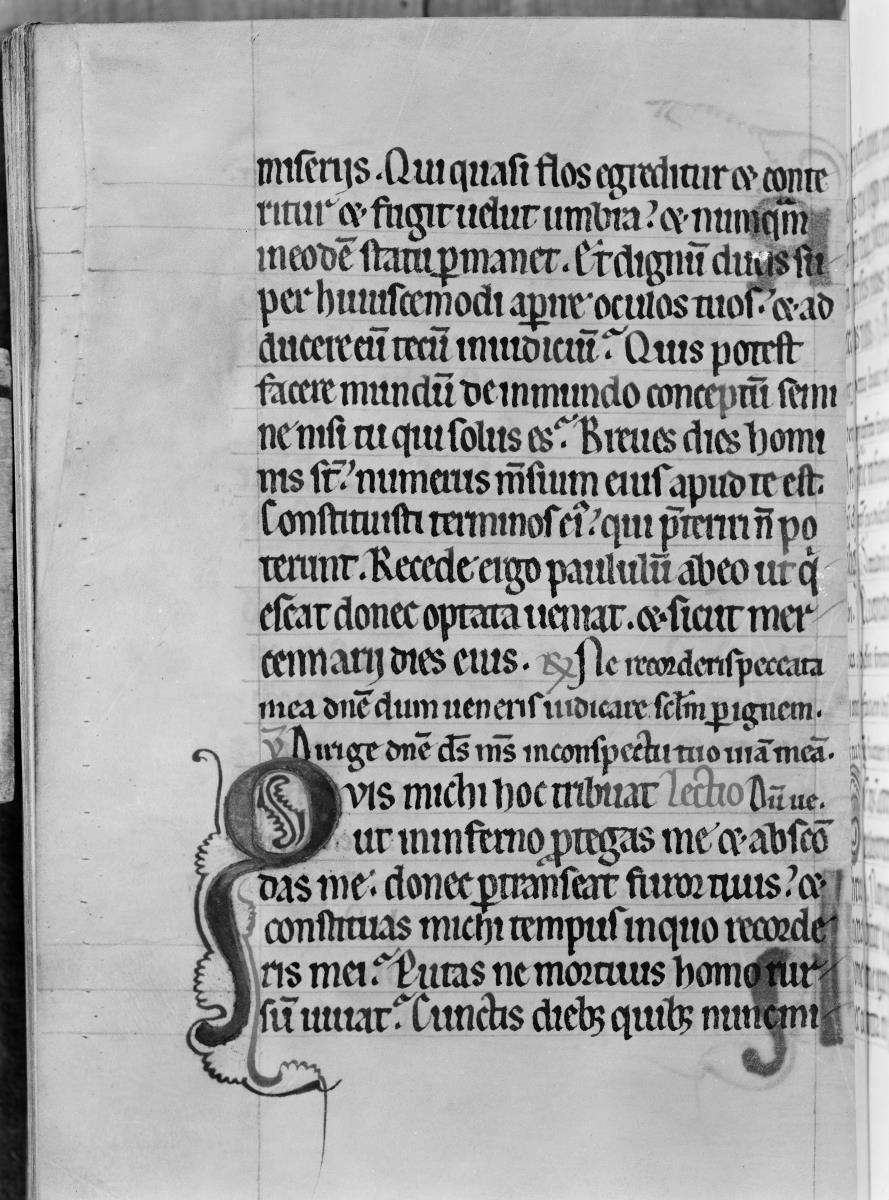 miserijs. Qui quasi flos egreditur & conte
ritur & fugit uelut umbra? & nūqm̄
ineodē statu ꝑmanet. Et dignū ducis su
per huiuscemodi aꝑire oculos tuos? & ad
ducere eū tecū iniudiciū? Quis potest
facere mundū de inmundo conceptū semi
ne nisi tu qui solus es? Breues dies homi
nis st̄? numerus m̄sium eius apud te est.
Constituisti terminos ei᷒? qui p̄teriri n̄ po
terunt. Recede ergo paululū abeo ut qͥ
escat donec optata ueniat. & sicut mer
cennarij dies eius. ℟ Ne recorderis peccata
mea dn̄e dum ueneris iudicare sc̄lm ꝑ ignem.
℣ Dirige dn̄e ds̄ ms̄ inconspectu tuo uiā meā.
Qvis michi hoc tribuat Lectio Dū ue.
ut ininferno ꝓtegas me & abscō
das me: donec ꝑtranseat furor tuus? &
constituas michi tempus inquo recorde
ris mei? Putas ne mortuus homo rur
sū uiuat? Cunctis diebꝫ quibꝫ nunc mi